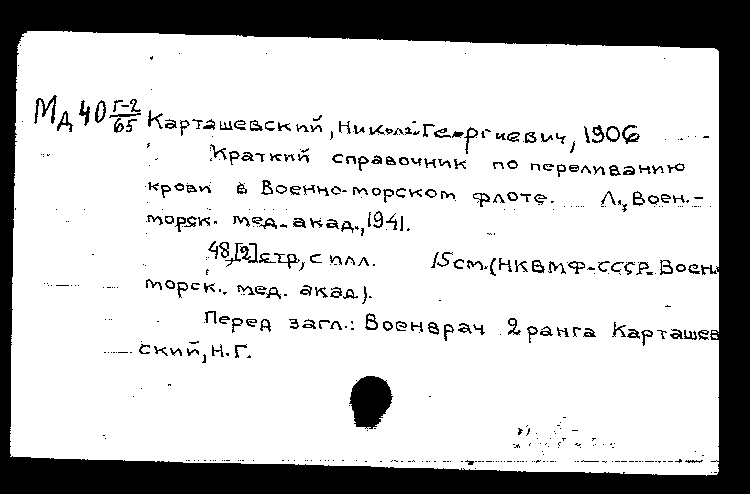 Мд 40 Г-2/65 Карташевский, Николай Георгиевич, 1906
Краткий справочник по переливанию
крови в Военно-морском флоте. Л., Воен.-
морск. мед. акад., 1941.
48,[2] стр, с илл. 15 см. (НКВМФ-СССР. Воен.
морск. мед. акад).
Перед загл.: Военврач 2 ранга Карташев
ский, Н.Г.